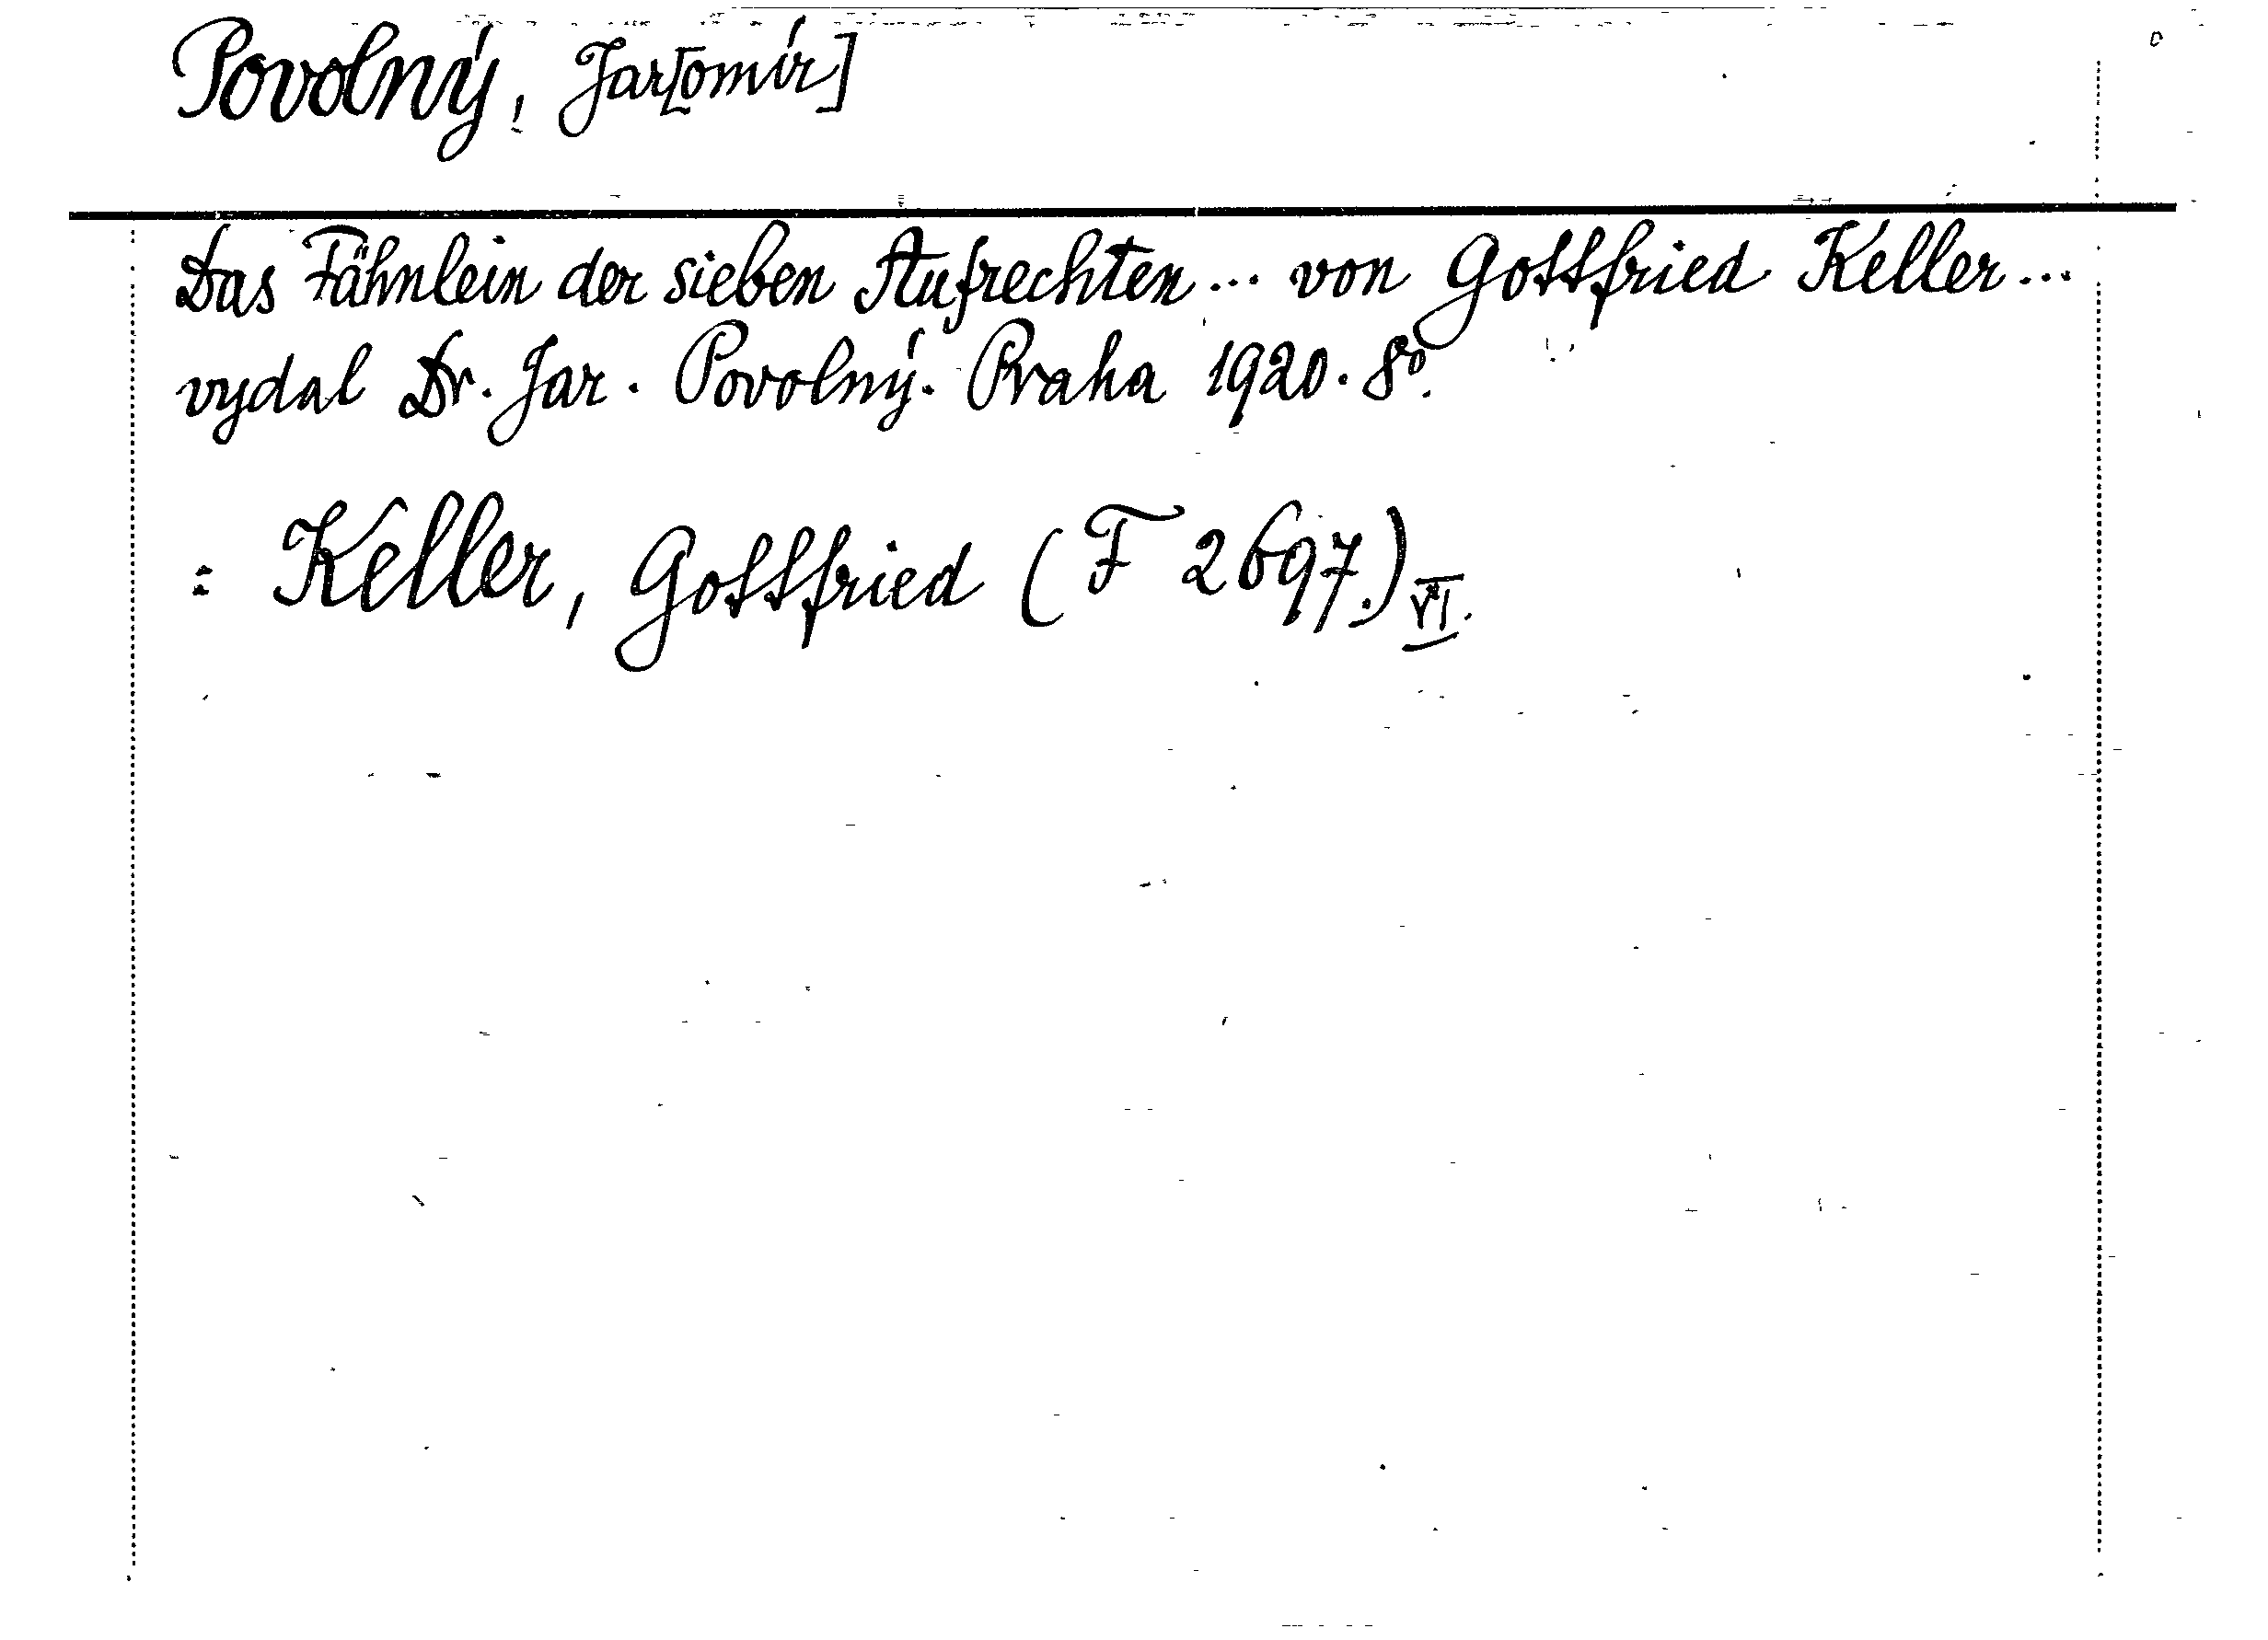 Povolný, Jar[omír]
Das Fähnlein der sieben Aufrechten... von Gottfried Keller...
vydal Dr. Jar. Povolný. Praha 1920. 8º.
: Keller, Gottfried (F 2697.) VI.